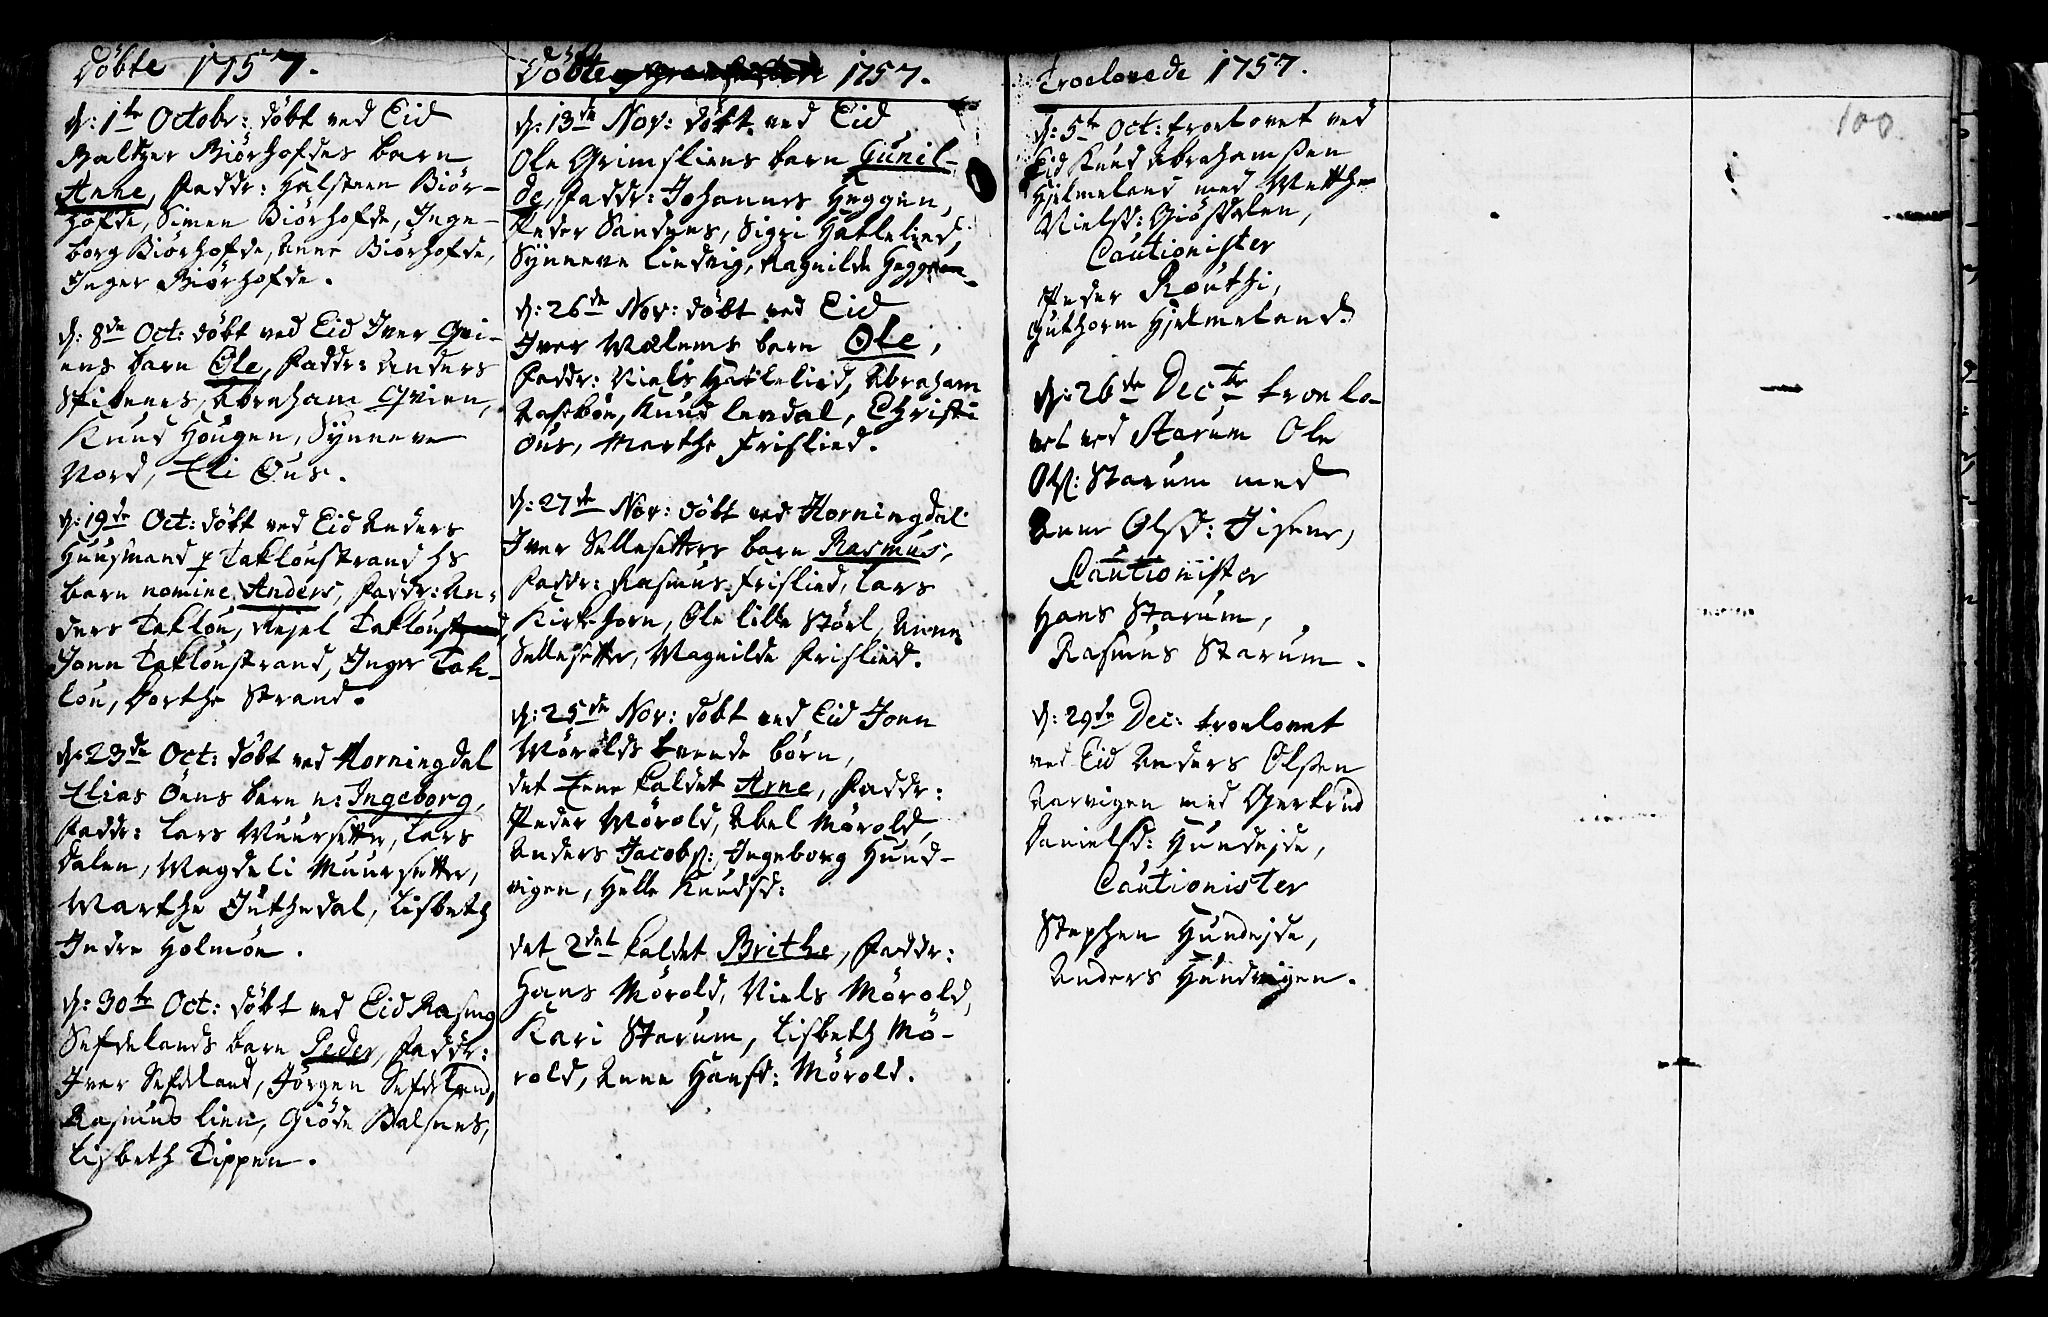 Döbte 1757.
d: 1te Octobr: döbt ved Eid
Baltzer Biörhofdes barn
Anne, Faddr: Halsteen Biör-
hofde, Simen Biörhofde, Inge-
borg Biörhofde, Anne Biörhofde,
Inger Biörhofde.
d: 8de Oct: döbt ved Eid Iver Qvi-
ens barn Ole, Faddr: Anders
Abraham Qvien,
Knud Hougen, Synneve
Nord, Eli Ous.
d: 19de Oct: döbt ved Eid Anders
Huusmand p Takloustrand hs
barn nomine Anders, Faddr: An-
ders Taklou, Rejel Takloustrand,
Jonn Takloustrand, Inger Tak-
lou, Dorthe Strand.
d: 23de Oct: döbt ved Horningdal
Elias Öens barn n: Ingeborg,
Faddr: Lars Muursetter, Lars
Dalen, Magdeli Muursetter,
Marthe Juthedal, Lisbeth
Indre Holmöe.
d: 30te Oct: döbt ved Eid Rasmus
Sefdelands barn Peder, Faddr:
Iver Sefdeland, Jörgen Sefdeland,
Rasmus Lien, Giöde Balsnes,
Lisbeth Tippen.
Döbte 1757.
d: 13de Nov: döbt ved Eid
Ole Grimsliens barn Gunil-
de, Faddr: Johannes Heggen,
Peder Sandnes, Sigri Hatlelied,
Synneve Liedvig, Ragnilde Heggen.
d: 26de Nov: döbt ved Eid
Iver Mælems barn Ole,
Faddr: Niels Hatlelied, Abraham
Knud Levdal, Christi
Ous, Marthe Frislied.
d: 27de Nov: döbt ved Horningdal
Iver Sellesetters barn Rasmus,
Faddr: Rasmus Frislied, Lars
Kirkehorn, Ole lille Störl, Anne
Sellesetter, Magnilde Frislied.
d: 25de Nov: döbt ved Eid Jonn
Mörolds tvende börn,
det Eene kaldet Arne, Faddr:
Peder Mörold, Abel Mörold,
Anders Jacobs: Ingeborg Hund-
vigen, Helle Knudsd:
det 2det kaldet Brithe, Faddr:
Hans Mörold, Niels Mörold,
Kari Starum, Lisbeth Mö-
rold, Anne Hansd: Mörold.
Troelovede 1757.
100
d: 5te Oct: troelovet ved
Eid Knud Abrahamsen
Hjelmeland med Metthe
Nielsd: Giösdalen,
Cautionister
Peder Routhi,
Guthorm Hjelmeland.
d: 26de Decbr troelo-
vet ved Starum Ole
Ols: Starum med
Anne Olsd: Jisene,
Cautionister
Hans Starum,
Rasmus Starum.
d: 29de Dec: troelovet
ved Eid Anders Olsen
Aarvigen med Gertrud
Danielsd: Hundejde,
Cautionister
Stephen Hundejde,
Anders Hundvigen.